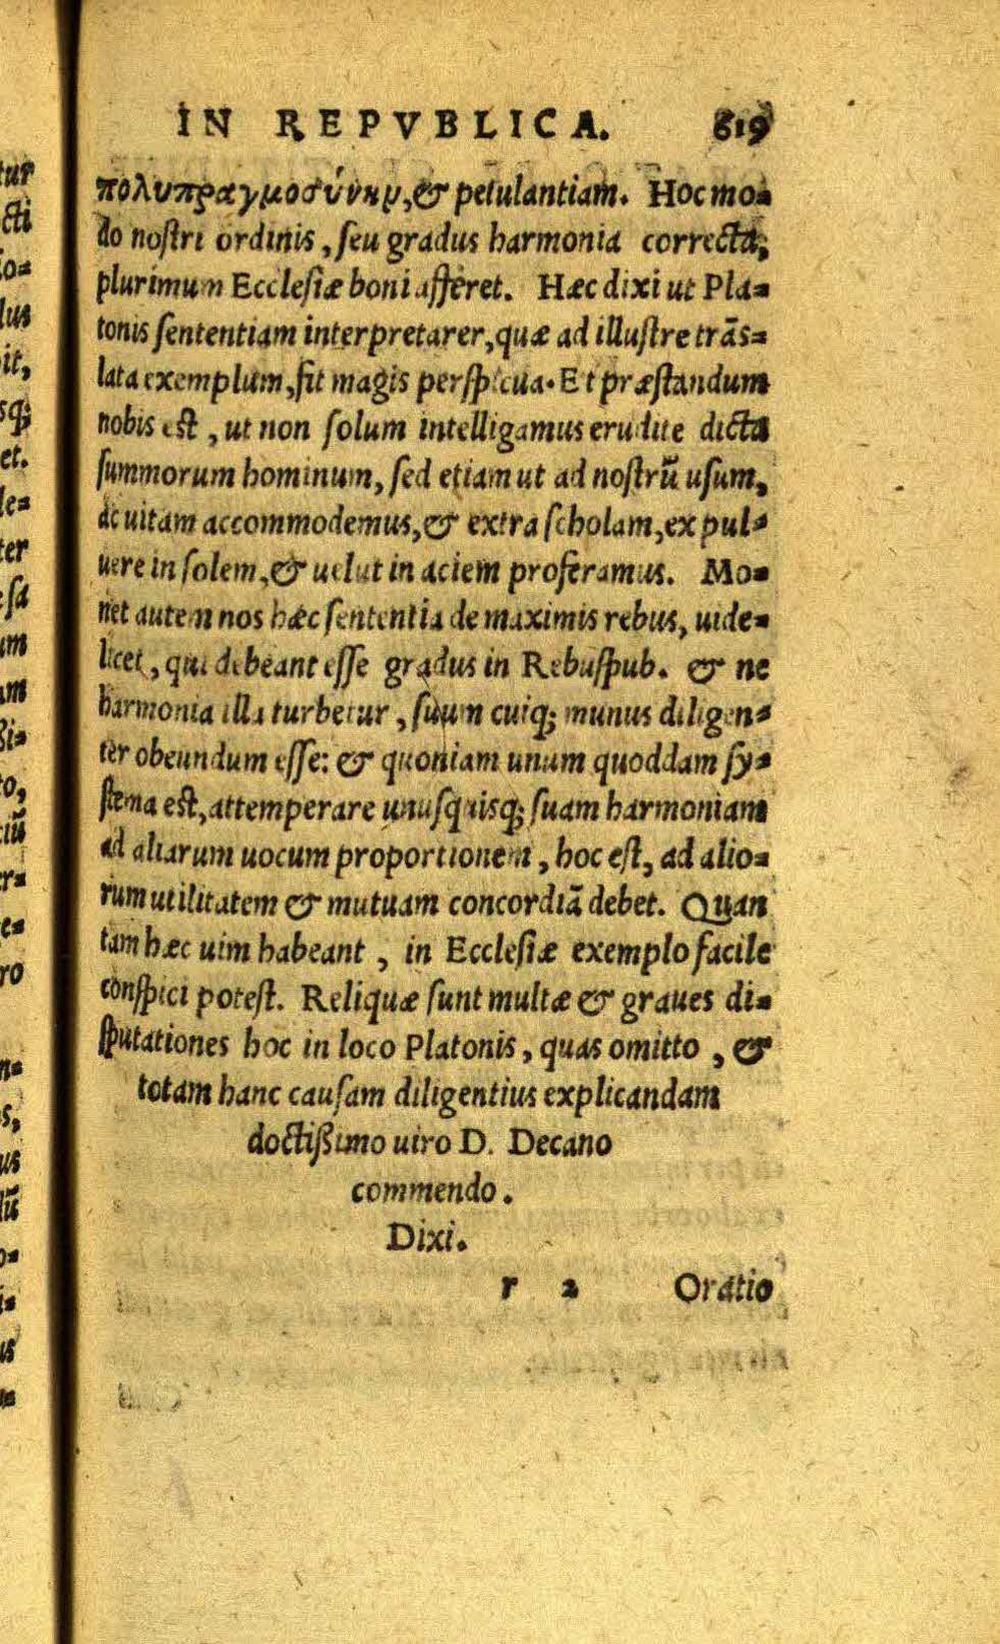 IN REPVBLICA. 819
πολυπραγμοσύνην, & petulantiam. Hoc mo=
do nostri ordinis, seu gradus harmonia correcta,
plurimum Ecclesiæ boni afferet. Hæc dixi ut Pla=
tonis sententiam interpretarer, quæ ad illustre trãs=
lata exemplum, fit magis perspicua. Et præstandum
nobis est, ut non solum intelligamus erudite dicta
summorum hominum, sed etiam ut ad nostrũ usum,
ac uitam accommodemus, & extra scholam, ex pul=
uere in solem, & uelut in aciem proferamus. Mo=
net autem nos hæc sententia de maximis rebus, uide=
licet, qui debeant esse gradus in Rebuspub. & ne
harmonia illa turbetur, suum cuiq; munus diligen=
ter obeundum esse: & quoniam unum quoddam sy=
stema est, attemperare unusquisq; suam harmoniam
ad aliarum uocum proportionem, hoc est, ad alio=
rum utilitatem & mutuam concordiã debet. Quan
tam hæc uim habeant, in Ecclesiæ exemplo facile
conspici potest. Reliquæ sunt multæ & graues di=
sputationes hoc in loco Platonis, quas omitto, &
totam hanc causam diligentius explicandam
doctißimo uiro D. Decano
commendo.
Dixi.
r 2 Oratio